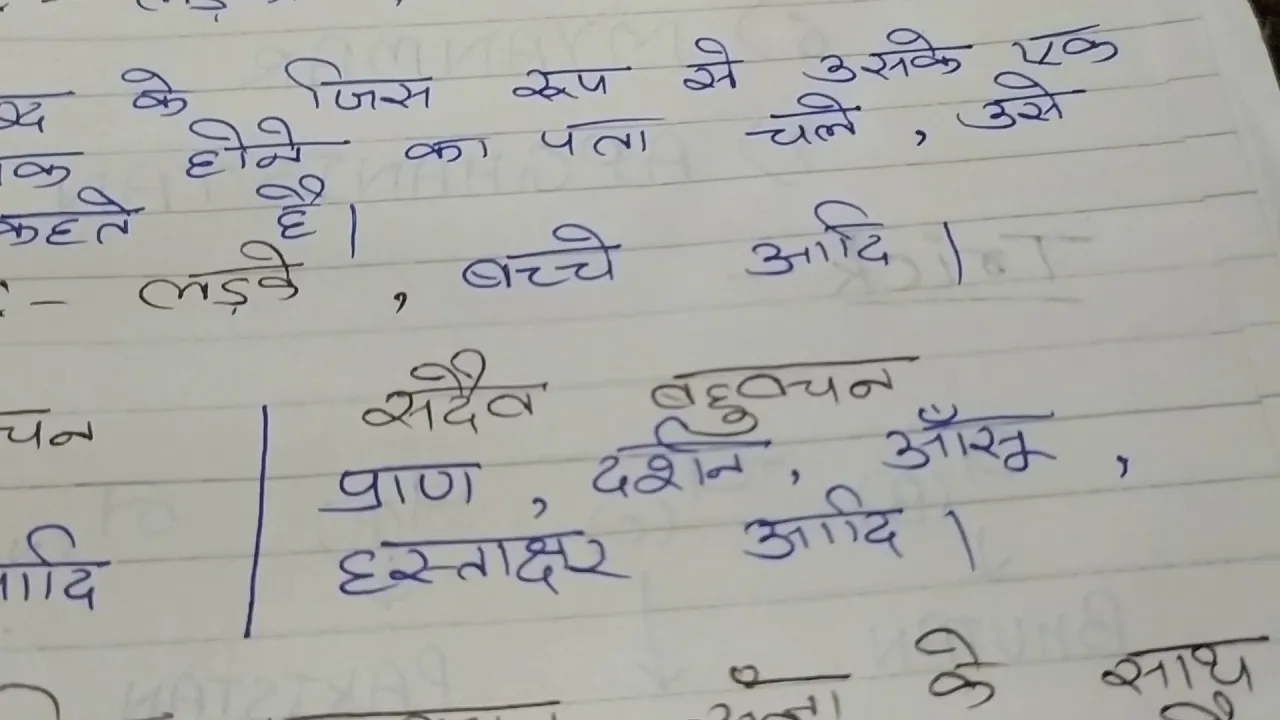 के जिस रूप से उसके एक
होने का पता चले, उसे
कहते है।
:- लड़के, बच्चे आदि।
सदैव बहुवचन
चन
प्राण, दर्शन, आँसू,
आदि
हस्ताक्षर आदि।
के साथ